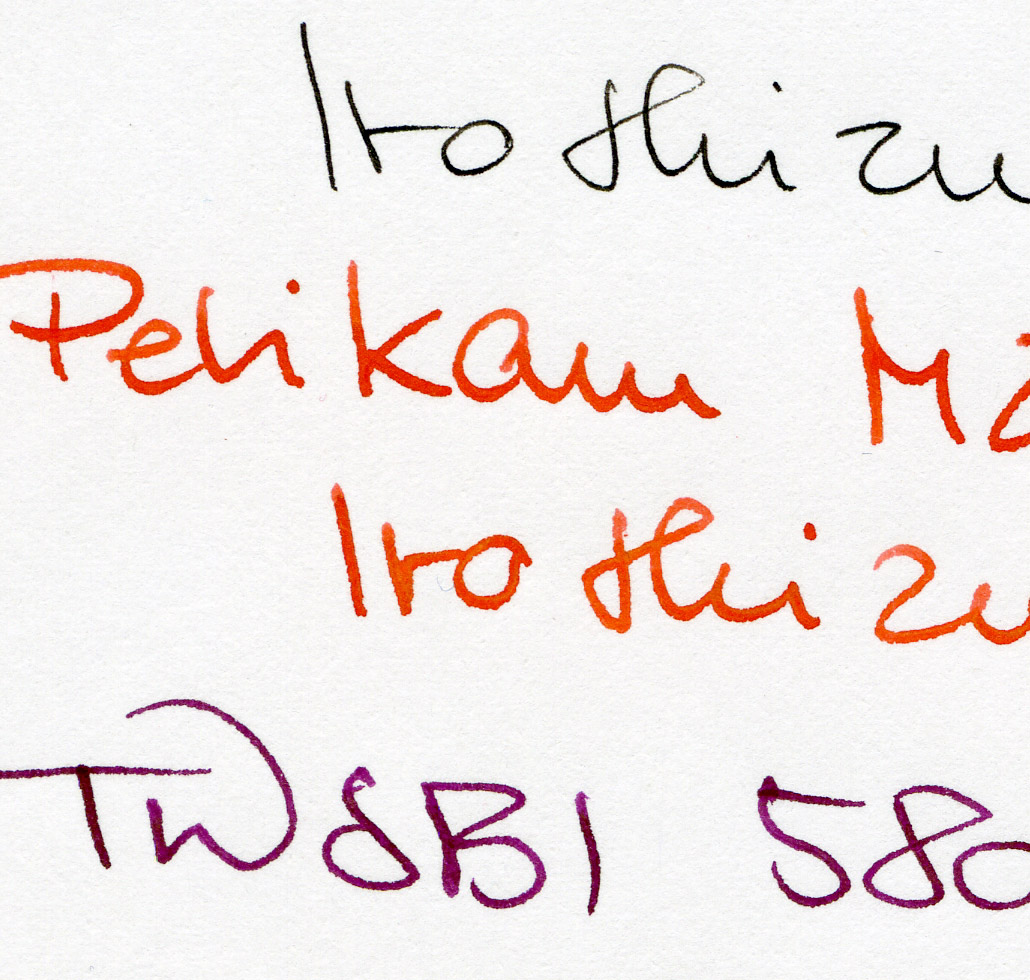 Iroshizu
Pelikan M2
Iroshizu
TWSBI 580